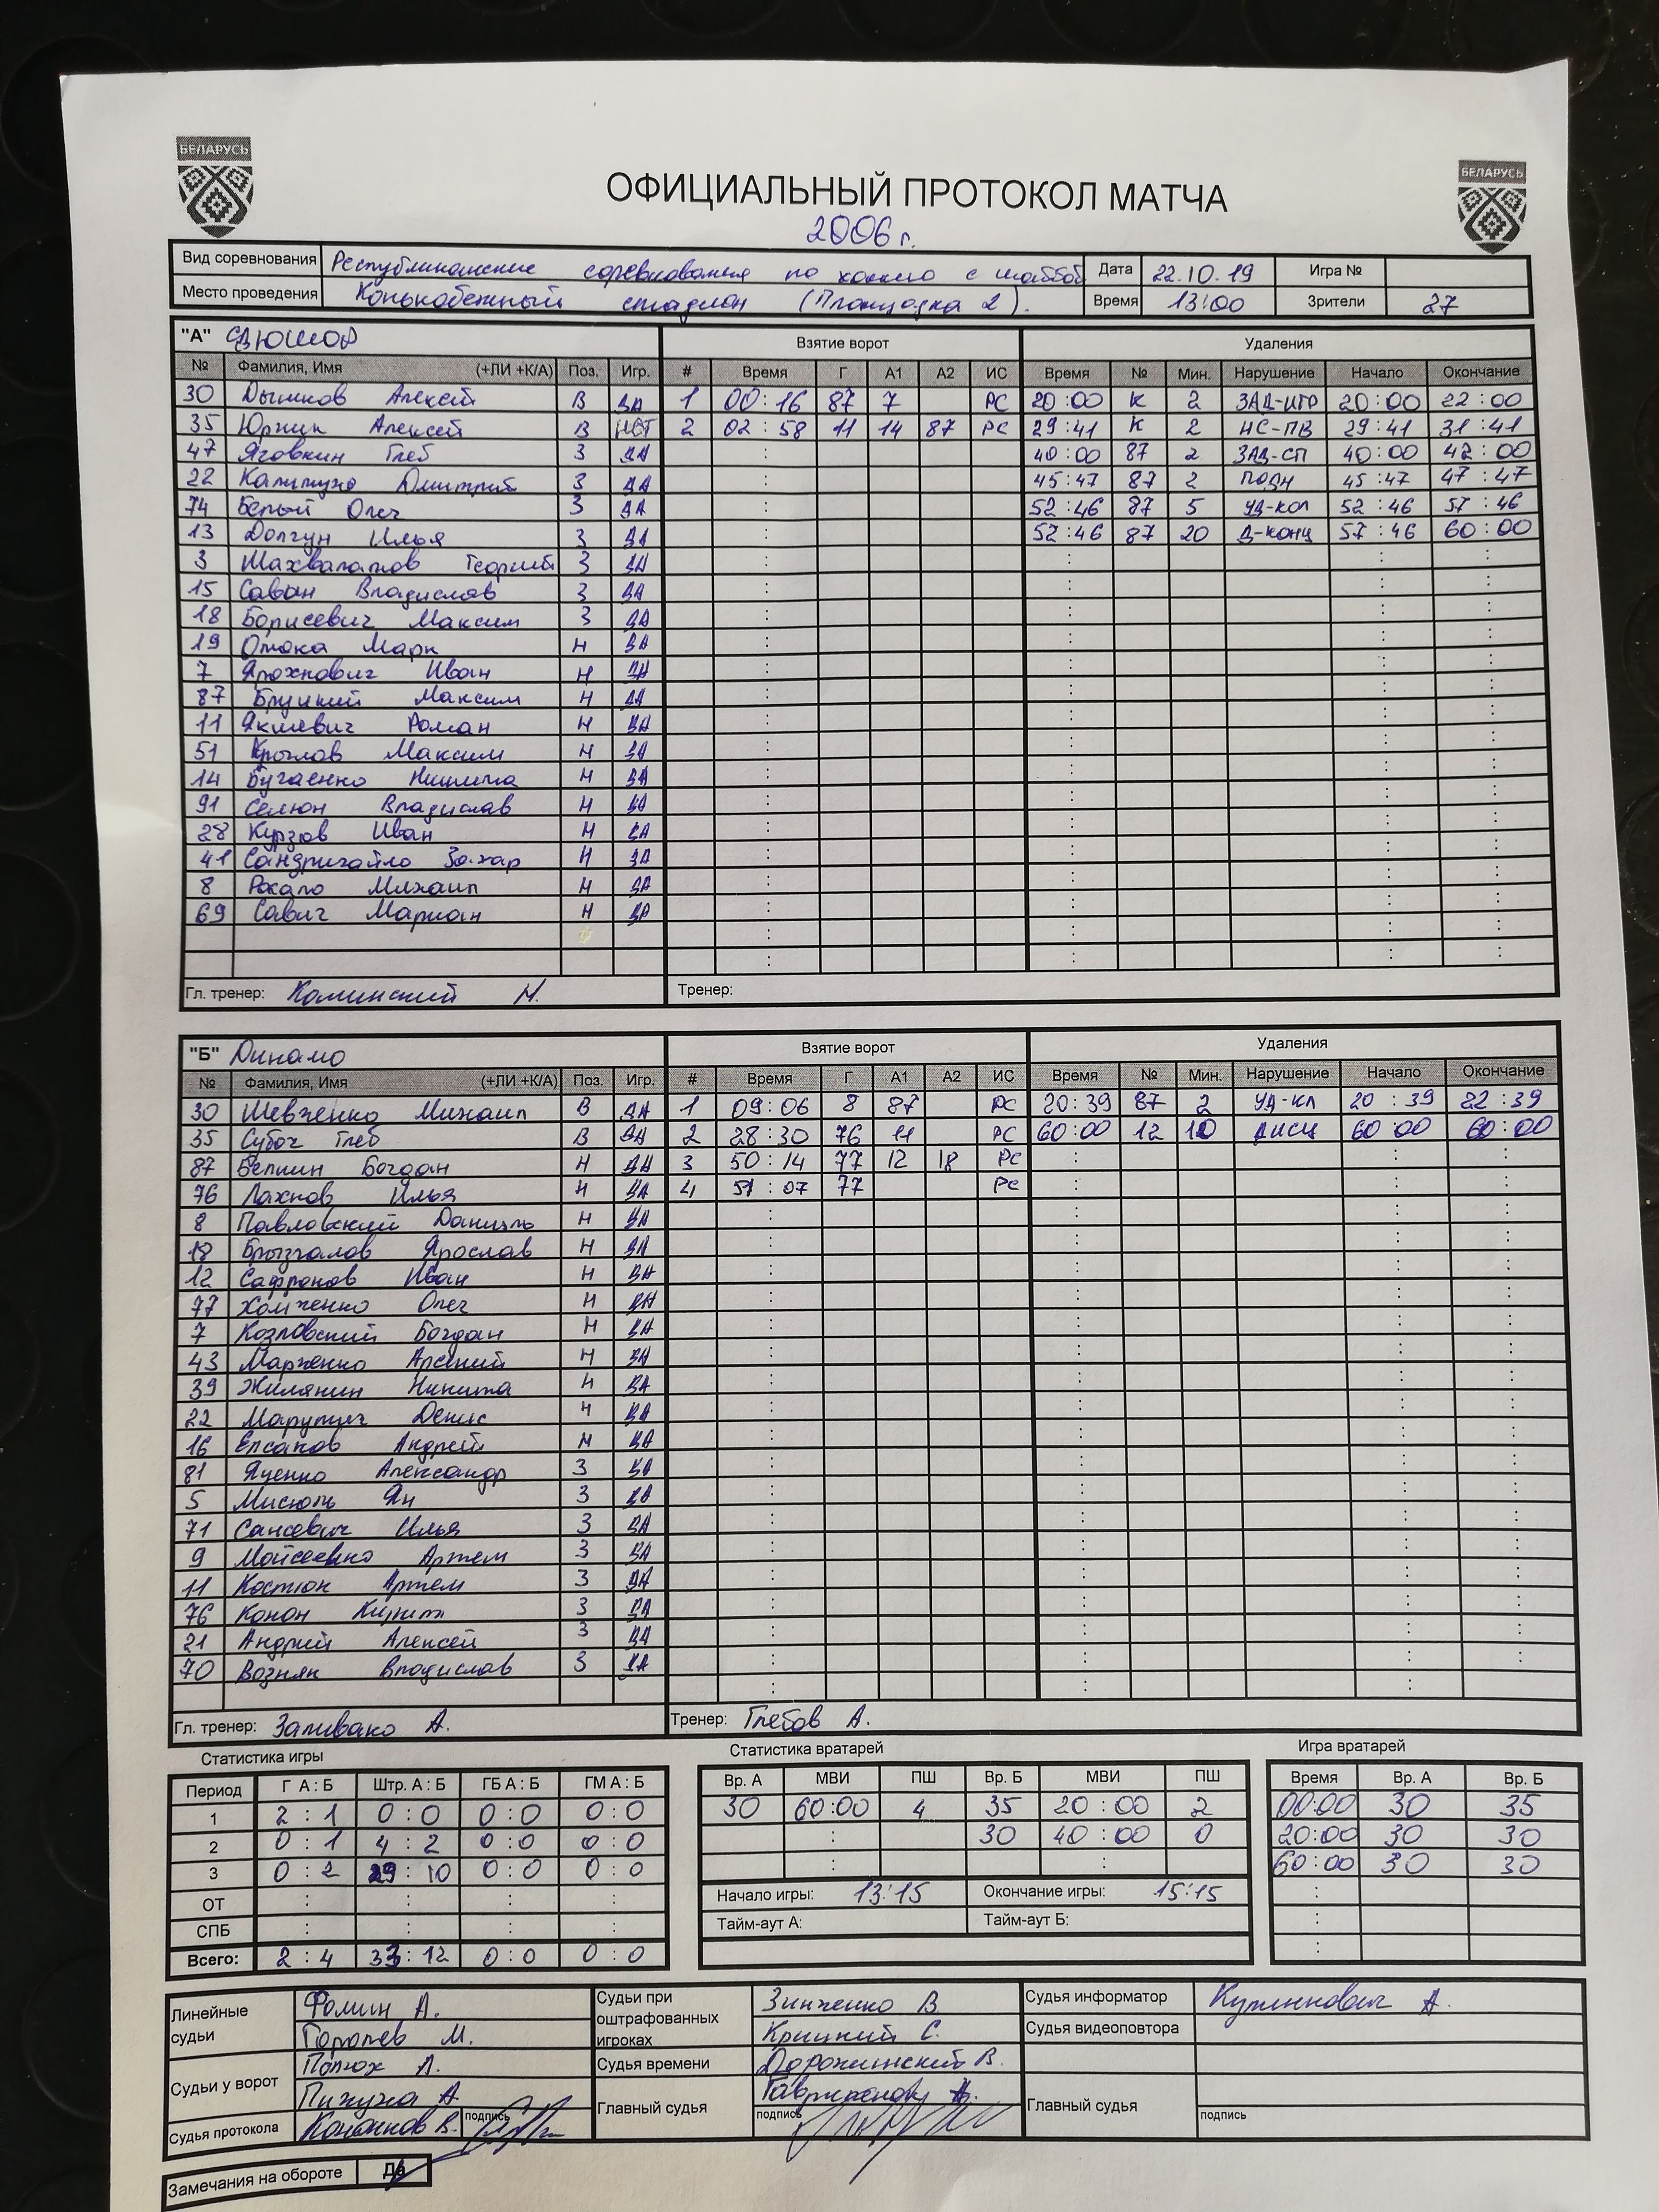 БЕЛАРУСЬ
БЕЛАРУСЬ
ОФИЦИАЛЬНЫЙ ПРОТОКОЛ МАТЧА
2006 г.
Вид соревнования Республиканские соревнования по хоккею с шайбой Дата 22.10.19 Игра №
Место проведения Конькобежный стадион (Площадка 2). Время 13:00 Зрители 27
"А" СДЮШОР Взятие ворот Удаления
№ Фамилия, Имя (+ЛИ +К/А) Поз. Игр. # Время Г А1 А2 ИС Время № Мин. Нарушение Начало Окончание
30 Алексей В ДА 1 00:16 87 7 РС 20:00 К 2 ЗАД-ИГР 20:00 22:00
35 Юрчик Алексей В НЕТ 2 02:58 11 14 87 РС 29:41 К 2 НС-ПВ 29:41 31:41
47 Яговкин Глеб З ДА : 40:00 87 2 ЗАД-СП 40:00 42:00
22 Дмитрий З ДА : 45:47 87 2 ПОДН 45:47 47:47
74 Белый Олег З ДА : 52:46 87 5 УД-КОЛ 52:46 57:46
13 Долгун Илья З ДА : 52:46 87 20 Д-КОНЦ 57:46 60:00
3 Георгий З ДА : : : :
15 Саван Владислав З ДА : : : :
18 Борисевич Максим З ДА : : : :
19 Омока Марк Н ДА : : : :
7 Ярохнович Иван Н ДА : : : :
87 Бруцкий Максим Н ДА : : : :
11 Якшевич Роман Н ДА : : : :
51 Крылов Максим Н ДА : : : :
14 Бугаенко Никита Н ДА : : : :
91 Селюн Владислав Н ДА : : : :
28 Курзов Иван Н ДА : : : :
41 Сандригайло Захар Н ДА : : : :
8 Рокало Михаил Н ДА : : : :
69 Савич Мариан Н ДА : : : :
: : : :
: : : :
Гл. тренер: Каминский Н. Тренер:
"Б" Динамо Взятие ворот Удаления
№ Фамилия, Имя (+ЛИ +К/А) Поз. Игр. # Время Г А1 А2 ИС Время № Мин. Нарушение Начало Окончание
30 Шевченко Михаил В ДА 1 09:06 8 87 РС 20:39 87 2 УД-КЛ 20:39 22:39
35 Субоч Глеб В ДА 2 28:30 76 11 РС 60:00 12 10 ДИСЦ 60 00 60:00
87 Белкин Богдан Н ДА 3 50:14 77 12 18 РС : : :
76 Лахнов Илья Н ДА 4 51:07 77 РС : : :
8 Павловский Даниэль Н ДА : : : :
18 Брызгалов Ярослав Н ДА : : : :
12 Сафронов Иван Н ДА : : : :
77 Хомченко Олег Н ДА : : : :
7 Козловский Богдан Н ДА : : : :
43 Марченко Арсений Н ДА : : : :
39 Жилянин Никита Н ДА : : : :
22 Денис Н ДА : : : :
16 Елсаков Андрей Н ДА : : : :
81 Яценко Александр З ДА : : : :
5 Мисюль Ян З ДА : : : :
71 Сансевич Илья З ДА : : : :
9 Мойсеенко Артем З ДА : : : :
11 Костюк Артем З ДА : : : :
76 Конон Кирилл З ДА : : : :
21 Андрий Алексей З ДА : : : :
70 Возняк Владислав З ДА : : : :
: : :
Гл. тренер: Заливако А. Тренер: Глебов А.
Статистика игры Статистика вратарей Игра вратарей
Период Г А : Б Штр. А : Б ГБ А : Б ГМ А : Б Вр. А МВИ ПШ Вр. Б МВИ ПШ Время Вр. А Вр. Б
1 2 : 1 0 : 0 0 : 0 0 : 0 30 60:00 4 35 20:00 2 00:00 30 35
2 0 : 1 4 : 2 0 : 0 0 : 0 : 30 40:00 0 20:00 30 30
3 0 : 2 29 : 10 0 : 0 0 : 0 : : 60:00 30 30
ОТ : : : : Начало игры: 13:15 Окончание игры: 15:15 :
СПБ : : : : Тайм-аут А: Тайм-аут Б: :
Всего: 2 : 4 33 : 12 0 : 0 0 : 0 :
Линейные судьи Фомин А. Судьи при оштрафованных игроках Зинченко В. Судья информатор А.
Горопев М. Крицкий С. Судья видеоповтора
Судьи у ворот А. Судья времени Дорожинский В.
Пикуха А. Главный судья Главный судья
Судья протокола В. подпись подпись подпись
Замечания на обороте Да